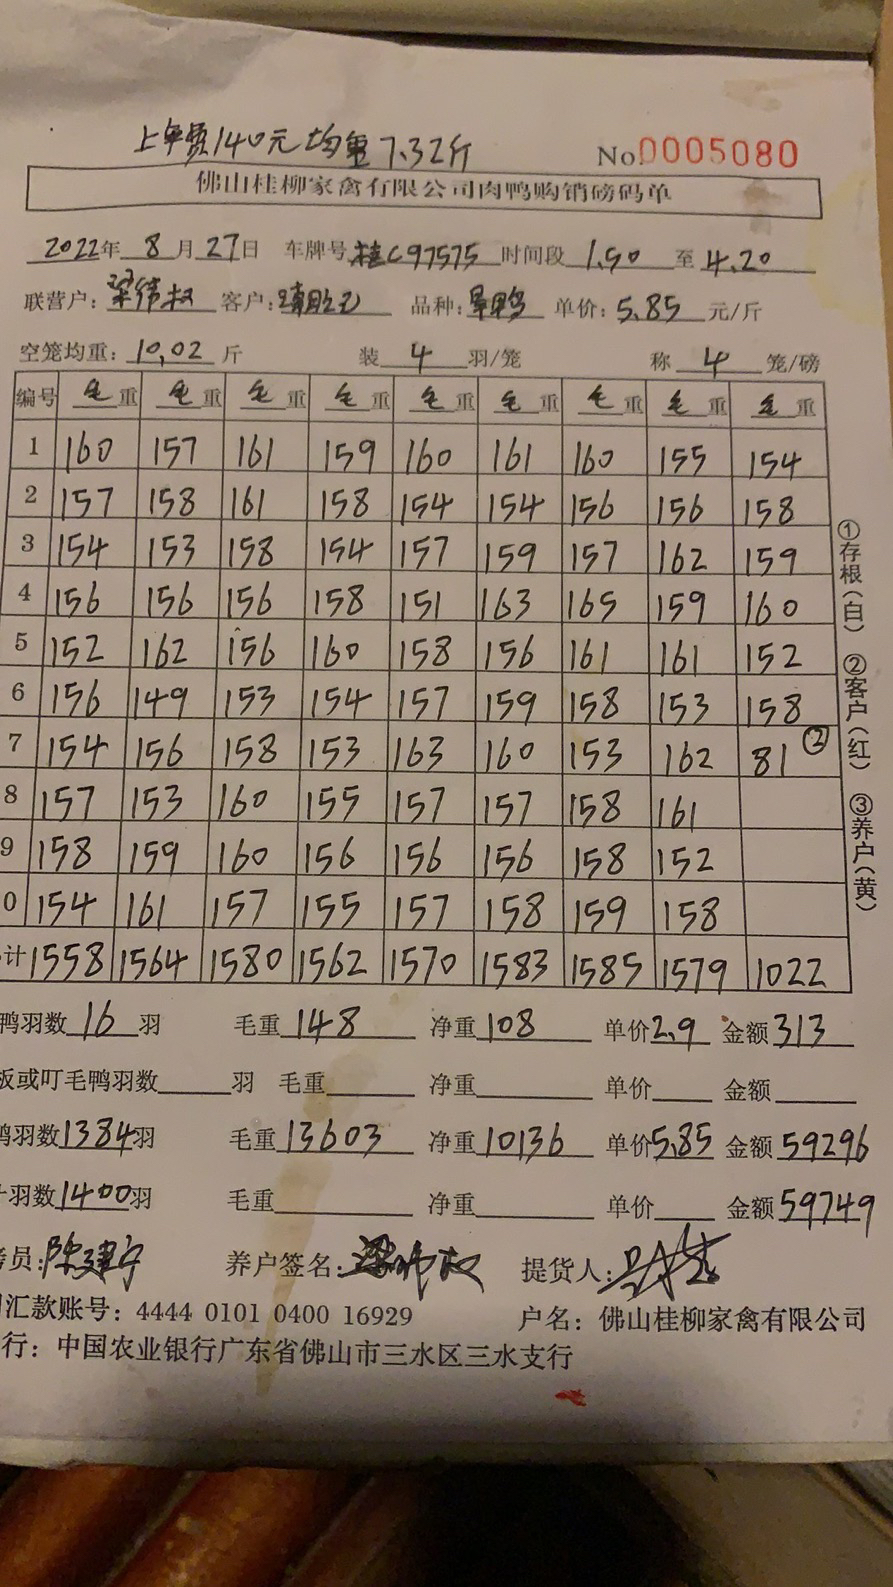 上车费140元 均重7.32斤
No.0005080
佛山桂柳家禽有限公司肉鸭购销磅码单
2022年 8月27日 车牌号 桂C97575 时间段 1.50 至 4.20
联营户: 梁伟权 客户: 品种: 单价: 5.85 元/斤
空笼均重: 10.02 斤 装 4 羽/笼 称 4 笼/磅
编号 毛重 毛重 毛重 毛重 毛重 毛重 毛重 毛重 毛重
1 160 157 161 159 160 161 160 155 154
2 157 158 161 158 154 154 156 156 158
3 154 153 158 154 157 159 157 162 159
4 156 156 156 158 151 163 165 159 160
5 152 162 156 160 158 156 161 161 152
6 156 149 153 154 157 159 158 153 158
7 154 156 158 153 163 160 153 162 81 ②
8 157 153 160 155 157 157 158 161
9 158 159 160 156 156 156 158 152
0 154 161 157 155 157 158 159 158
计 1558 1564 1580 1562 1570 1583 1585 1579 1022
鸭羽数 16 羽 毛重 148 净重 108 单价 2.9 金额 313
板或叮毛鸭羽数 羽 毛重 净重 单价 金额
鸭羽数 1384 羽 毛重 13603 净重 10136 单价 5.85 金额 59296
羽数 1400 羽 毛重 净重 单价 金额 59749
员: 陈建宁 养户签名: 梁伟权 提货人:
汇款账号: 4444 0101 0400 16929 户名: 佛山桂柳家禽有限公司
行: 中国农业银行广东省佛山市三水区三水支行
①存根(白) ②客户(红) ③养户(黄)